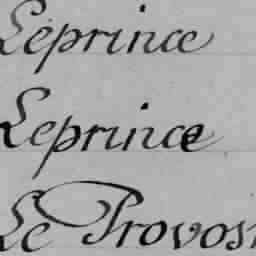 Leprince
Leprince
Le Provost